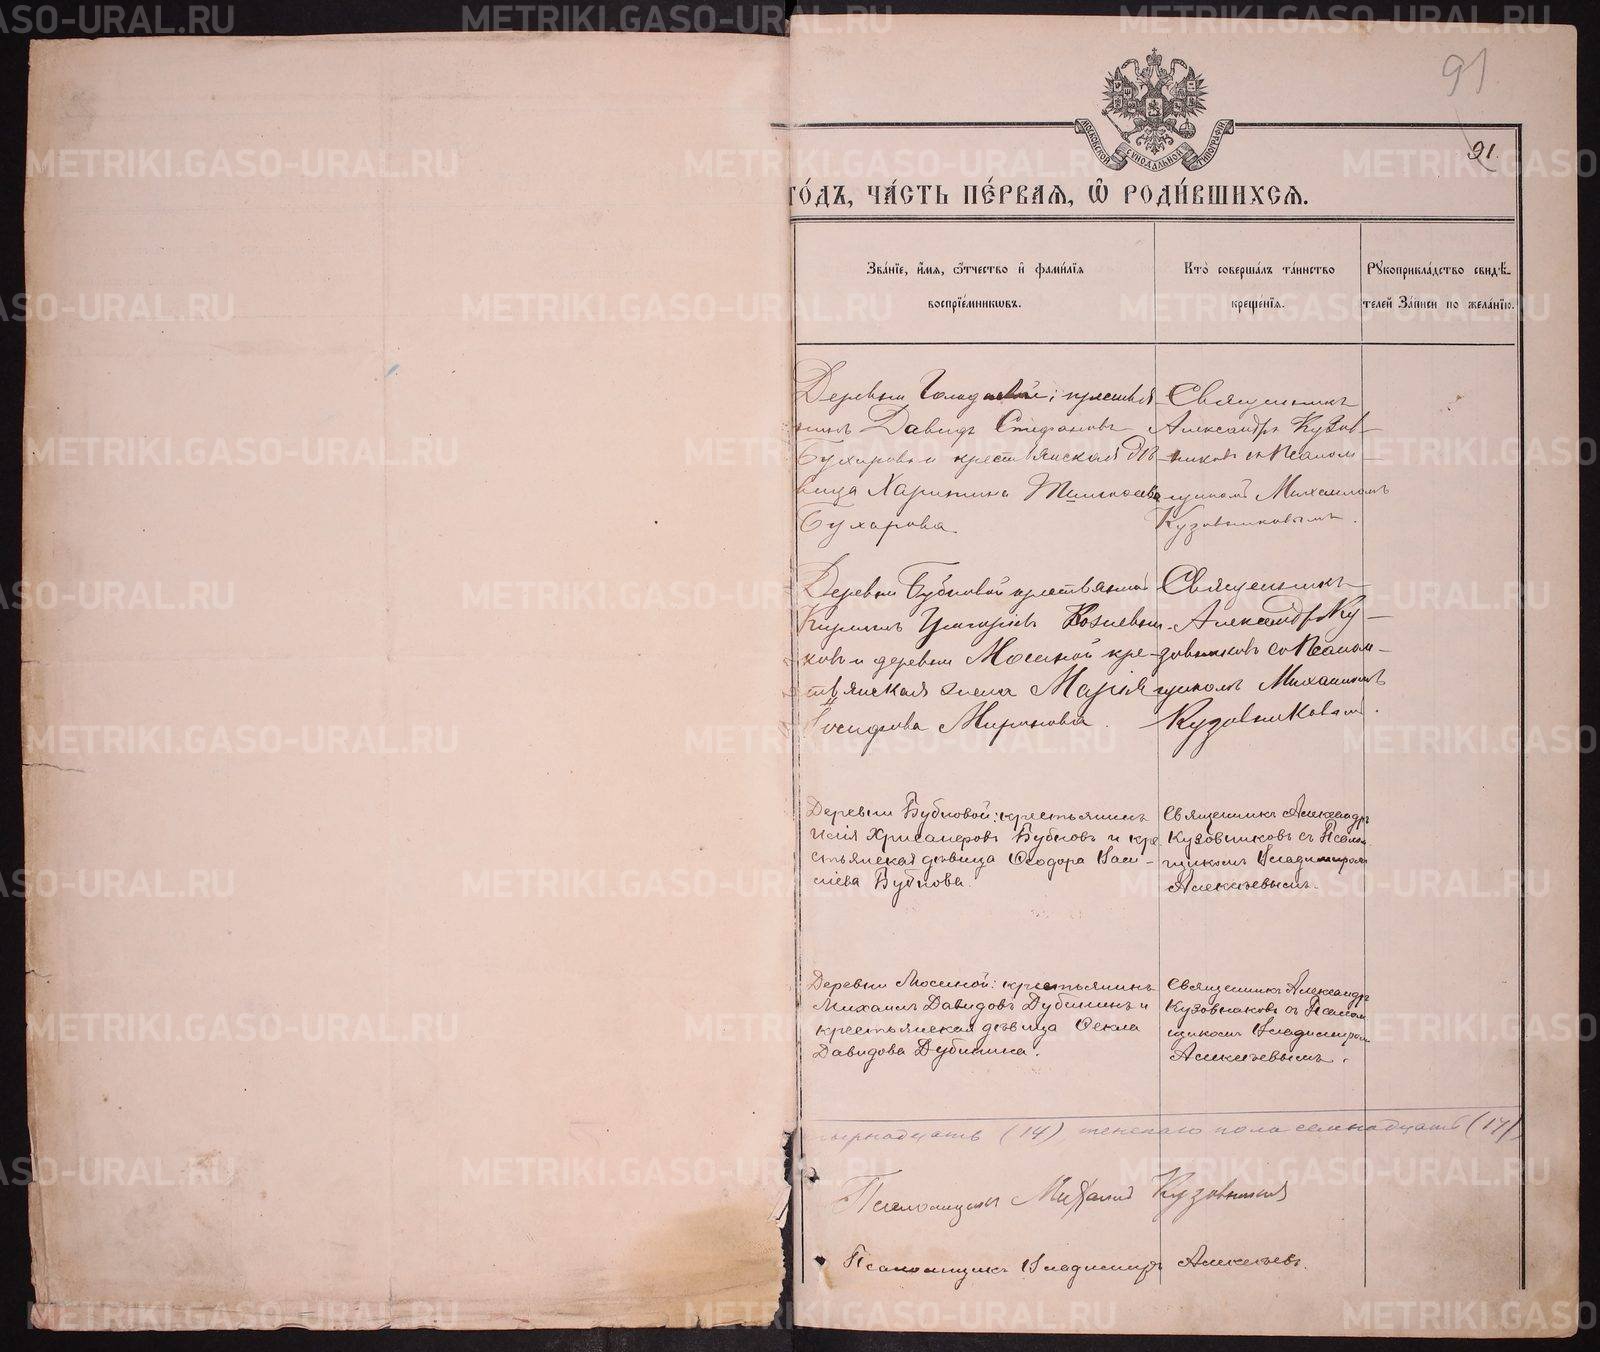 91
91.
МОСКОВСКОЙ СУНОДАЛЬНОЙ ТИПОГРАФІИ
го́дъ, ча́сть пе́рваѧ, ѡ҆ роди́вшихсѧ.
Зва́нїе, и҆́мѧ, ѻ҆́тчество и҆ фами́лїѧ
воспрїе́мникѡвъ.
Кто̀ соверша́лъ та́инство
креще́нїѧ.
Рꙋкоприкла́дство свидѣ́-
телей за́писи по жела́нїю.
Деревни крестья
нинъ Давидъ Стефановъ
Бухаровъ и крестьянская дѣ
вица Харитина
Бухарова
Священникъ
Александръ Кузов-
никовъ со Псалом
щикомъ Михаиломъ
Кузовниковымъ.
Деревни Бубновой крестьянинъ
Кириллъ Григорьевъ
ховъ и деревни Мосиной кре-
стьянская жена Марія
Іосифова Миронова.
Священникъ
Александръ Ку-
зовниковъ со Псалом-
щикомъ Михаиломъ
Кузовниковым.
Деревни Бубновой: крестьянинъ
Илія Хрисанфовъ Бубновъ и кре
стьянская дѣвица Ѳеодора Васи-
лiева Бубнова.
Священникъ Александръ
Кузовниковъ съ Псалом
щикомъ Владимиромъ
Алексѣевымъ.
Деревни Мосиной: крестьянинъ
Михаилъ Давидовъ Дубининъ и
крестьянская дѣвица Ѳекла
Давидова Дубинина.
Священникъ Александръ
Кузовниковъ съ Псалом
щикомъ Владимиромъ
Алексѣевымъ.
тырнадцать (14), женскаго пола семнадцать (17)
Псаломщикъ Михаилъ Кузовниковъ
Псаломщикъ Владимиръ Алексѣевъ.